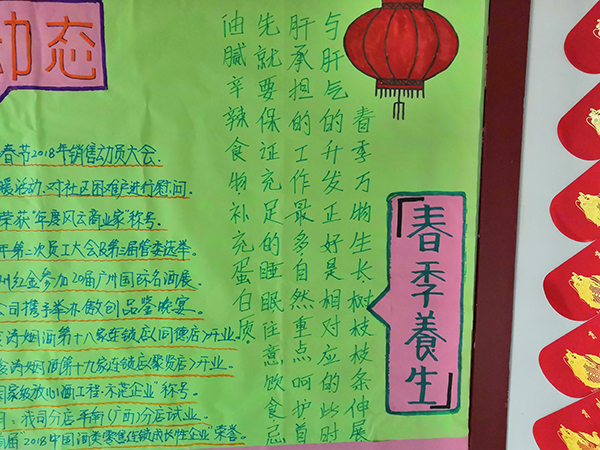 动态
春节2018年销售动员大会.
暖活动.对社区困难户进行慰问.
荣获"年度风云商业家"称号.
年第二次员工大会及第三届管委选举.
州红金参加20届广州国际名酒展.
公司携手举办傲创品鉴晚宴.
涛烟酒第十八家连锁店(同德店)开业.
涛烟酒第十九家连锁店(聚龙店)开业.
国家级放心酒工程·示范企业"称号.
我司分店平南(广西)分店试业.
届"2018中国酒类零售连锁成长性企业"荣誉.
「春季養生」
春季万物生长树枝枝条伸展
与肝气的升发正好是相对应的此时
肝承担的工作最多自然重点呵护首
先就要保证充足的睡眠注意饮食忌
油腻辛辣食物补充蛋白质